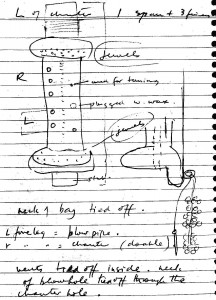 L of chanter 1 span + 3 fin
jewels
R
used for tuning
plugged w. wax.
L
jewels
neck of bag tied off.
L foreleg = blowpipe.
r " " = chanter (double)
vents tied off inside. neck
of blowhole tied off through the
chanter hole.